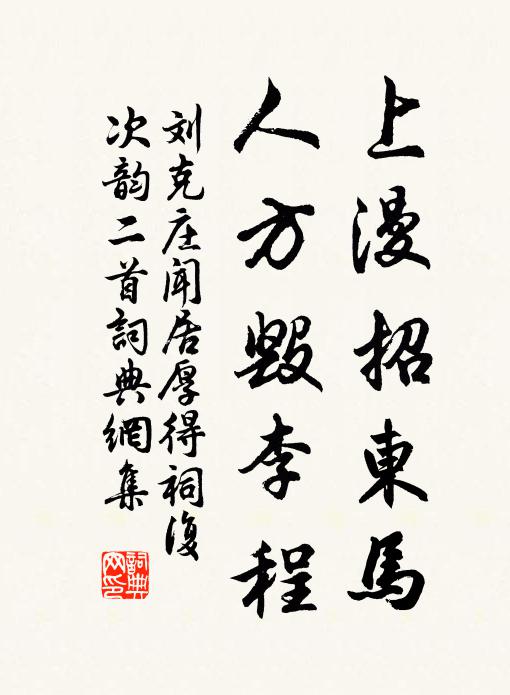 上漫招東馬
人方毀李程
刘克庄闻居厚得祠復
次韵二首詞典網集
詞典
网印